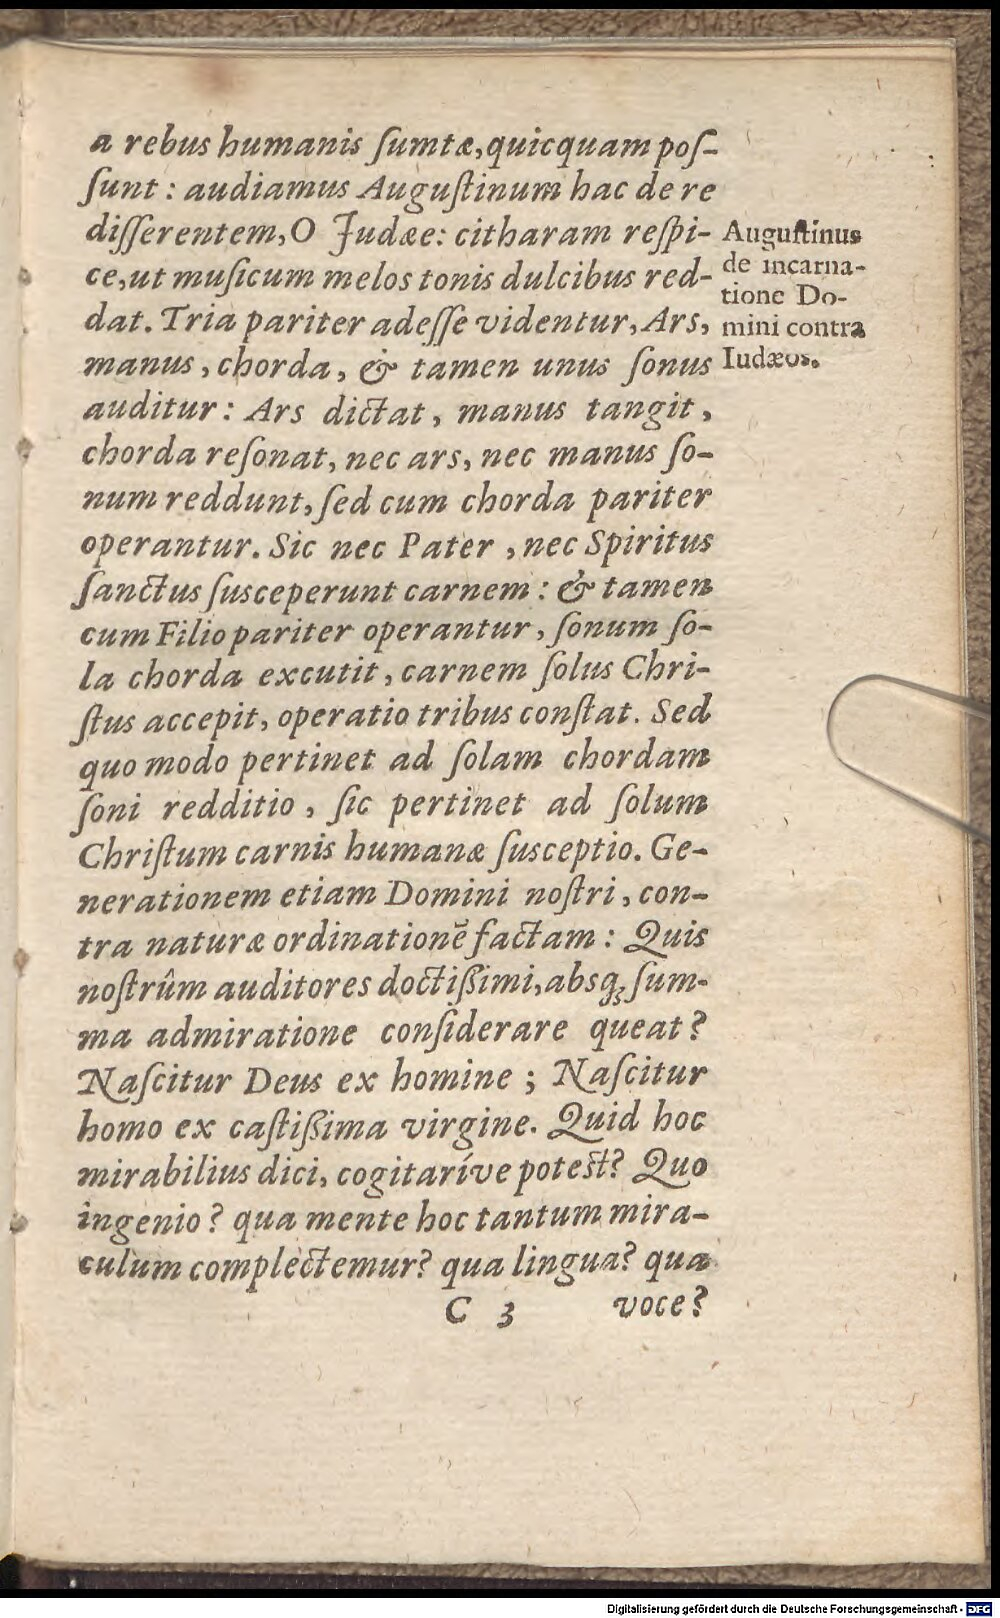 a rebus humanis ſumtæ, quicquam poſ-
ſunt: audiamus Auguſtinum hac de re
diſſerentem, O Judæe: citharam reſpi-
ce, ut muſicum melos tonis dulcibus red-
dat. Tria pariter adeſſe videntur, Ars,
manus, chorda, & tamen unus ſonus
auditur: Ars dictat, manus tangit,
chorda reſonat, nec ars, nec manus ſo-
num reddunt, ſed cum chorda pariter
operantur. Sic nec Pater, nec Spiritus
ſanctus ſusceperunt carnem: & tamen
cum Filio pariter operantur, ſonum ſo-
la chorda excutit, carnem ſolus Chri-
ſtus accepit, operatio tribus conſtat. Sed
quo modo pertinet ad ſolam chordam
ſoni redditio, ſic pertinet ad ſolum
Chriſtum carnis humanæ ſusceptio. Ge-
nerationem etiam Domini noſtri, con-
tra naturæ ordinationē factam: Quis
noſtrûm auditores doctißimi, absq; ſum-
ma admiratione conſiderare queat?
Naſcitur Deus ex homine; Naſcitur
homo ex caſtißima virgine. Quid hoc
mirabilius dici, cogitaríve poteſt? Quo
ingenio? qua mente hoc tantum mira-
culum complectemur? qua lingua? qua
C 3 voce?
Auguſtinus
de incarna-
tione Do-
mini contra
Iudæos.
Digitalisierung gefördert durch die Deutsche Forschungsgemeinschaft - DFG